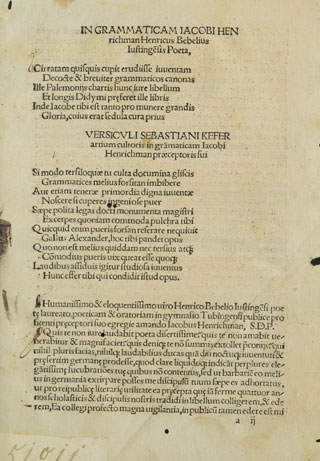 IN GRAMMATICAM IACOBI HEN
richman Henricus Bebelius
Iustingẽsis Poeta,
Cirratam quisquis cupit erudiisse iuuentam
Decocte & breuiter grammaticos canonas
Ille Palemonijs chartis hunc iure libellum
Et longis Didymi preferet ille libris
Inde Iacobe tibi est tanto pro munere grandis
Gloria, cuius erat sedula cura prius
VERSICVLI SEBASTIANI KEFER
artium cultoris in grãmaticam Iacobi
Henrichman præceptoris sui
Si modo tersiloquæ tu culta documina gliscis
Grammatices melius forsitan imbibere
Aut etiam teneræ primordia digna iuuentæ
Noscere si cuperes ingeniose puer
Sæpe polita legas docti monumenta magistri
Exceptes quoniam commoda pulchra tibi
Quicquid enim pueris forsan referare nequiuit
Gallus Alexander, hoc tibi pandet opus
Quo non est melius quiddam nec tersius atq̃
Cõmodius pueris uix queat esse quoq̃
Laudibus assiduis igitur studiosa iuuentus
Hunc effer tibi qui condidit istud opus.
Humanissimo & eloquentissimo uiro Henrico Bebelio Iustingẽsi poe
tę laureato, poeticam & oratoriam in gymnasio Tubingensi publice pro
fitenti preceptori suo egregie amando Iacobus Henrichman, S.D.P.
Quis te non iure laudabit poeta disertissime: quis te non amabit ue
herabitur & magnifaciet: quis deniq̃ te nõ summis extollet pręconijs: qui
nihil pluris facias, nihilq̃ laudabilius ducas quã diu noctuq̃ iuuentuti &
presertim germanę prodesse, quod clare liquidoq̃ indicãt perplures ele
gãtissimę lucubratiões tuę quibus nõ contentus, sed ut barbariẽ e me
tius in germania extirpare posses me discipulũ tuum sæpe es adhortatus,
ut pro reipublicę literarię utilitate ea pręcepta quæ iã ferme quattuor an
nos scholasticis & discipulis nostris tradidi in libellum colligerem, & ede
rem, Ea collegi profecto magna uigilantia, in publicũ tamen edere est mi
a ij